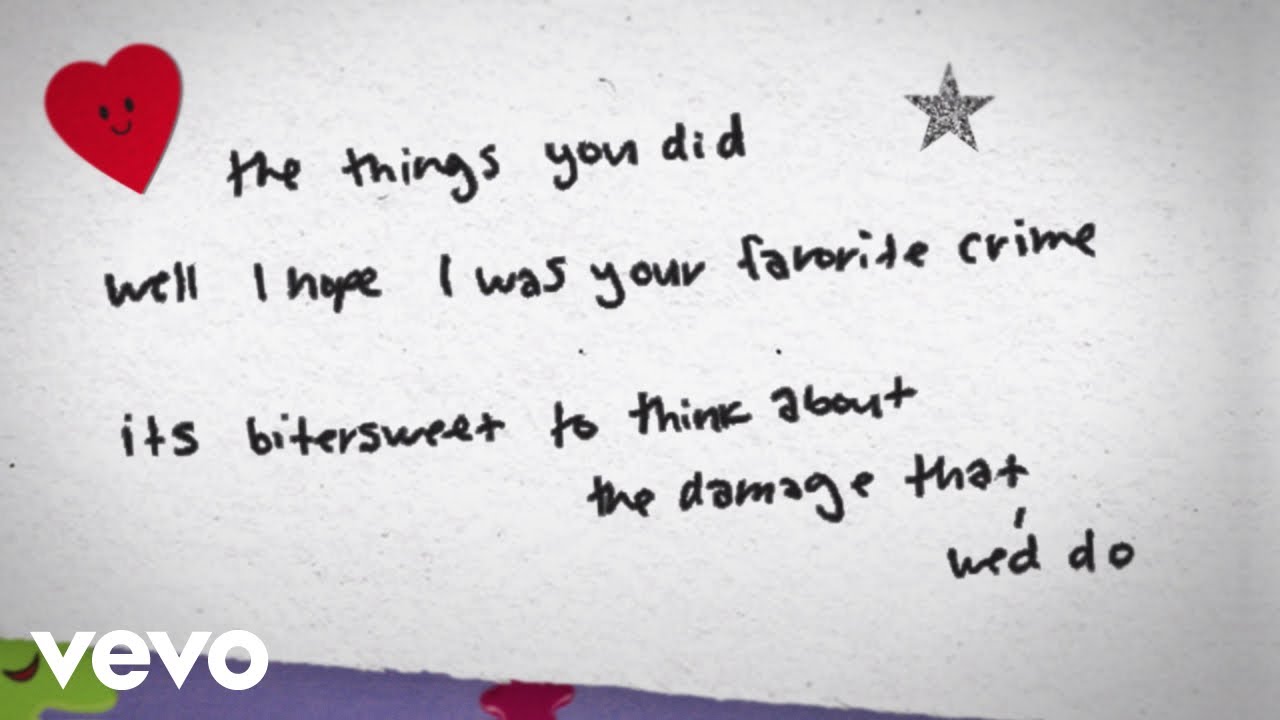 the things you did
well I hope I was your favorite crime
its bitersweet to think about
the damage that
we'd do
vevo